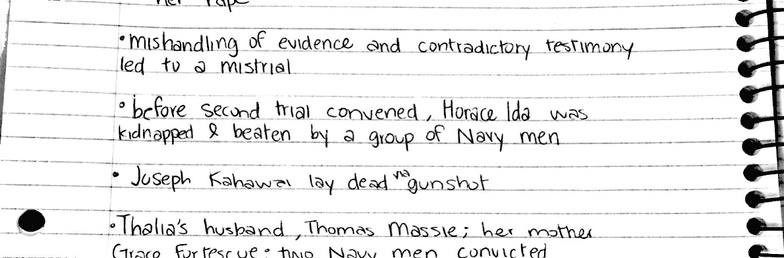 her rape
• mishandling of evidence and contradictory testimony
led to a mistrial
• before second trial convened, Horace Ida was
kidnapped & beaten by a group of Navy men
• Joseph Kahawai lay dead via gunshot
• Thalia's husband, Thomas Massie; her mother
Grace Fortescue; two Navy men convicted